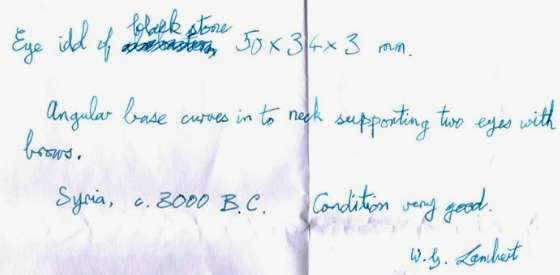 Eye idd of black stone 50 x 34 x 3 mm.
Angular base curves in to neck supporting two eyes with
brows.
Syria, c. 3000 B.C. Condition very good.
W.G. Lambert